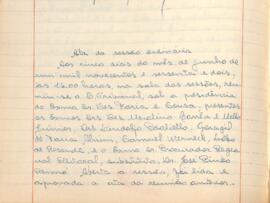 Ata da sessão ordinária
Aos cinco dias do mês de junho de
um mil novecentos e sessenta e dois,
às 16.00 horas, na sala das sessões, reu-
niu-se o E. Tribunal, sob a presidência
do Exmo Sr. Des Faria e Sousa, presentes
os Exmos Srs. Des Merolino Corrêa e Mello
Júnior, Drs Landulfo
de Faria Alvim, Samuel Werneck,
de Rezende, e o Exmo Sr. Procurador Regio-
nal Eleitoral, substituto, Dr. José Pinto
Aberta a sessão, foi lida e
aprovada a ata da reunião anterior.